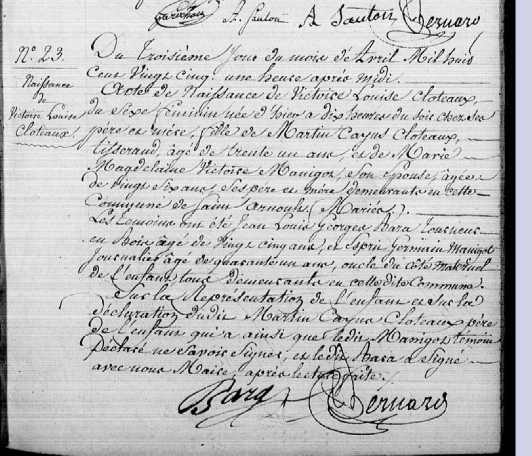 A. Sautoir A Sautoir Bernard
N.° 23.
Naissance
de
Victoire Louise
Cloteaux
Du troisième jour du mois de Avril Mil huit
Cent Vingt Cinq une heure après midi.
Acte de Naissance de Victoire Louise Cloteaux,
du sexe féminin née d'hier a dix heures du soir chez ses
père et mère, fille de Martin Cayus Cloteaux,
tisserand, âgé de trente un ans, et de Marie
Magdelaine Victoire Manigot, son épouse, âgée
de vingt six ans, ses père et mère demeurants en cette
Commune de Saint Arnoult (Mariés).
Les témoins ont été Jean Louis Georges Bara Tourneur
en bois âgé de Vingt cinq ans, et Esprit Germain Manigot
journalier âgé de quarante un ans, oncle du côté maternel
de l'enfant tous demeurants en cette dite Commune.
Sur la Représentation de l'enfant et sur la
déclaration dudit Martin Cayus Cloteaux père
de l'enfant qui a ainsi que ledit Manigot témoin
Déclaré ne savoir signer, et ledit Bara a signé
avec nous Maire, après lecture faite.
Bara Bernard